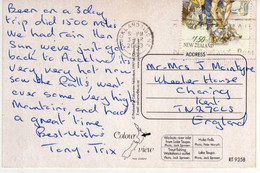 Been on a 3day
trip did 1500 miles
we had rain then
Sun, we've just got
back to Auckland its
very very hot now
saw the falls, went
over some very high
Mountains, and had
a great time.
Best-wishes
Tony. Trix
1.50 NEW ZEALAND
ADDRESS
Mr & Mrs J McIntyre
Wheeler House
Charing
Kent.
TN27
England
Colour
view
Huka Falls
Lake Taupo
Trout fishing
BT 935B